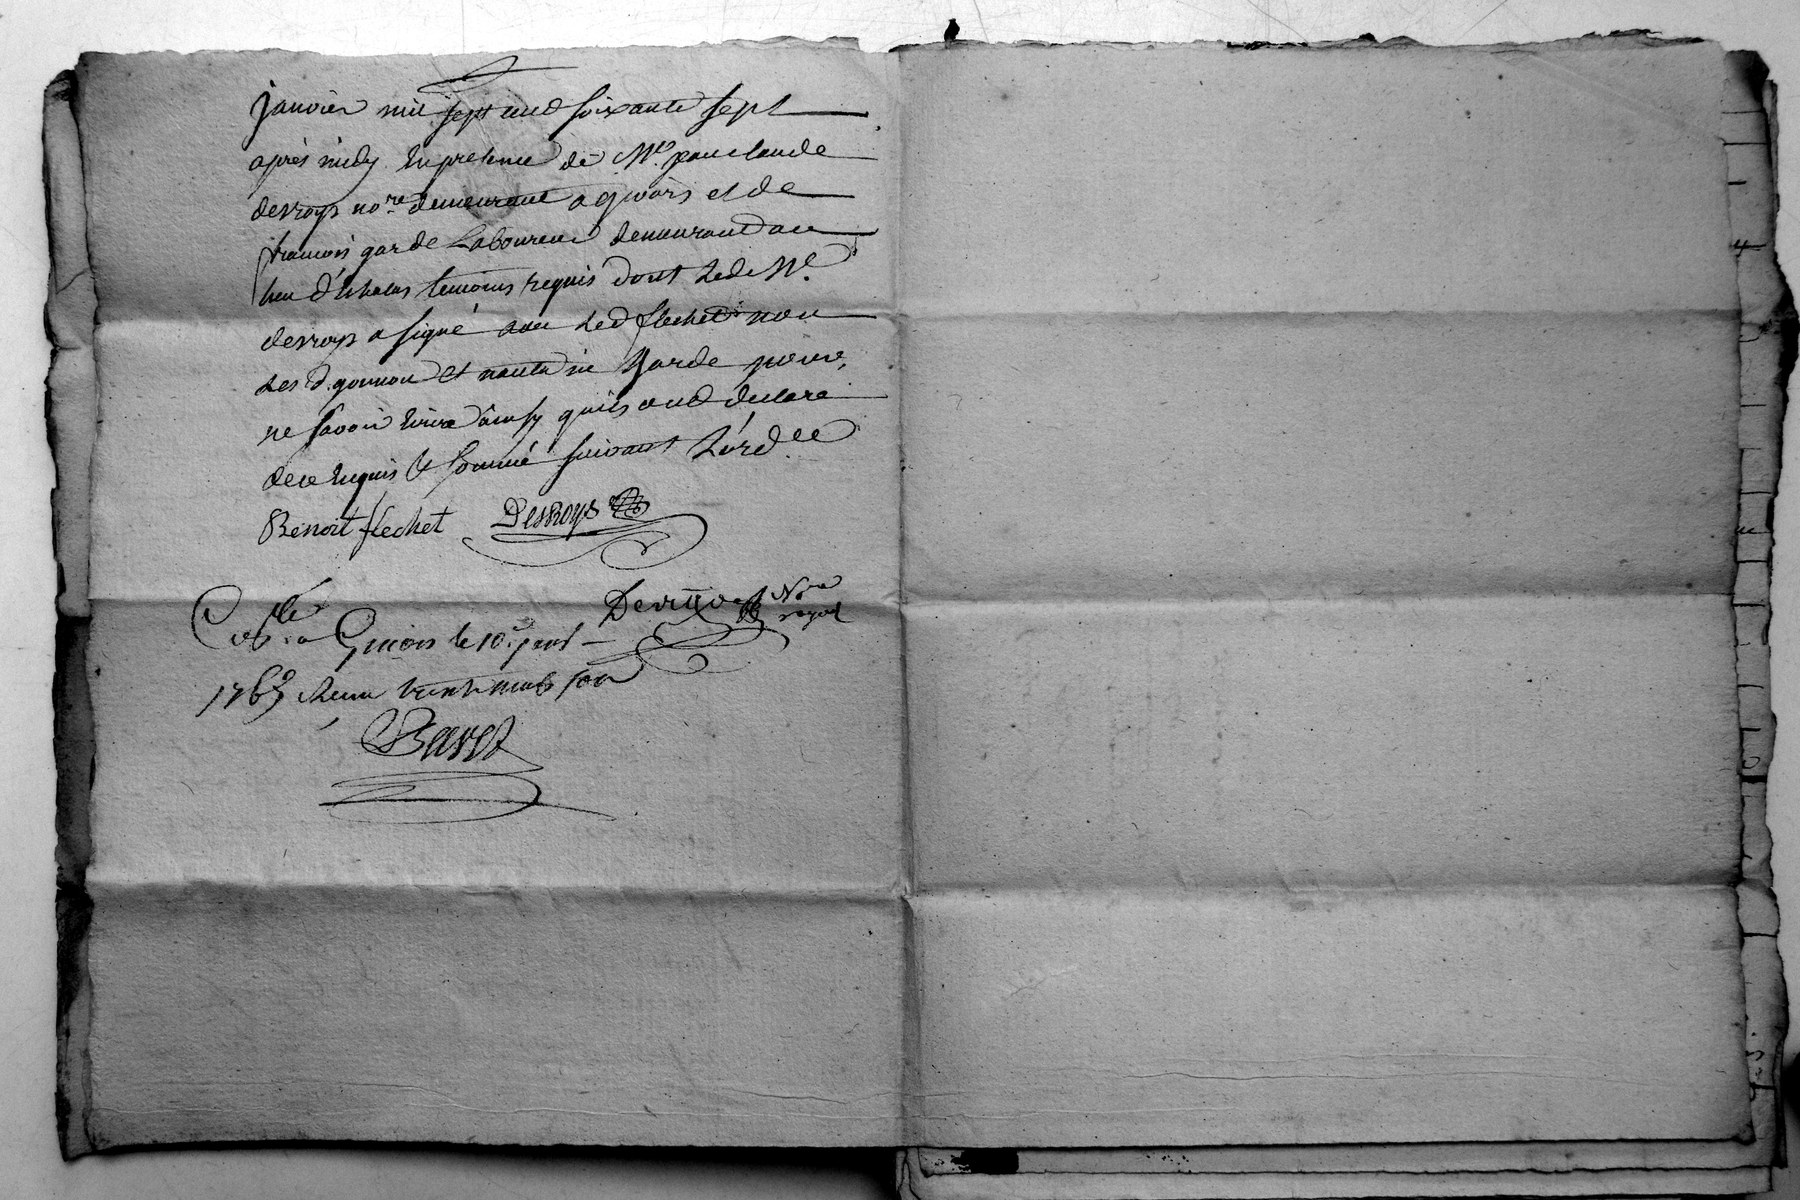 janvier mil sept cend soixante sept
après midy En presence de Me. jean claude
desroys nore. demeurant a givors et de
francois garde Laboureur demeurand au
lieu d'Echalas temoins requis dont Led. Me.
desroys a signé avec Led flechet non
Les d. gonnon et garde pour
ne savoir Ecrire ainsy quils ond declaré
de ce Enquis & sommé suivant L'ord.ce
Benoit flechet DesRoys
Nore royal
Con.llé a Givors le 10.e janv
1767 Recu treize sous